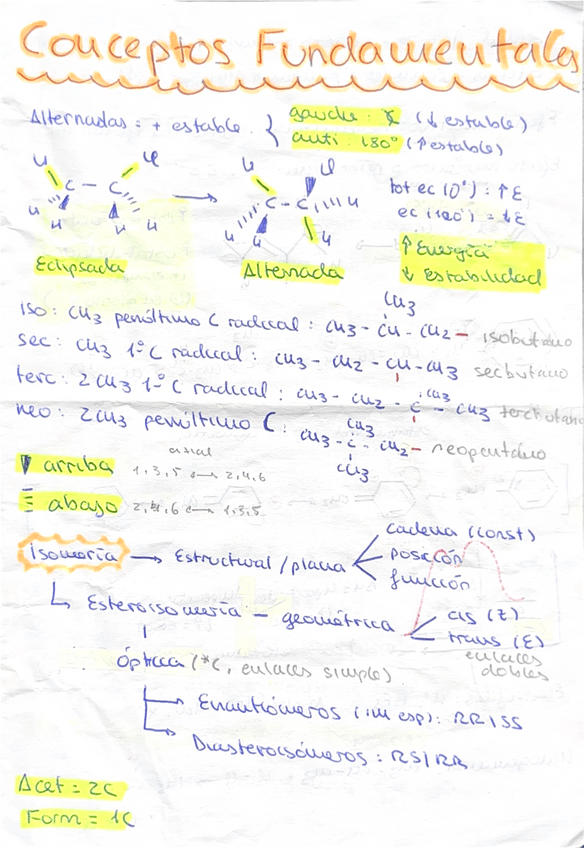 Conceptos Fundamentales
Alternadas = + estable { gauche: (↓ estable)
anti: 180° (↑ estable)
H Cl H Cl
C – C → C – C H
H H H H H H H
tot ec (0°): ↑E
ec (120°) = ↓E
Eclipsada Alternada
↑ Energía
↓ Estabilidad
CH3
iso: CH3 penúltimo C radical: CH3 – CH – CH2 – isobutano
sec: CH3 1º C radical: CH3 – CH2 – CH – CH3 secbutano
terc: 2CH3 1º C radical: CH3 – CH2 – C – CH3 terc
CH3
neo: 2CH3 penúltimo C: CH3 – C – CH2 – neopentano
CH3
CH3
axial
arriba 1,3,5 → 2,4,6
abajo 2,4,6 → 1,3,5
Isomería → Estructural/plana
cadena (const)
posición
función
Esteroisomería – geométrica
cis (Z)
trans (E)
enlaces dobles
óptica (*C, enlaces simple)
Enantiómeros (im esp): RR/SS
Diasteroisómeros: RS/RR
Acet = 2C
Form = 1C